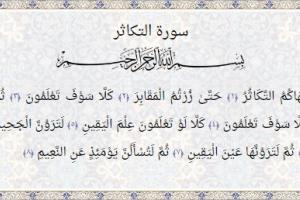 سورة التكاثر
بِسْمِ اللَّهِ الرَّحْمَٰنِ الرَّحِيمِ
هَاكُمُ التَّكَاثُرُ ﴿١﴾ حَتَّىٰ زُرْتُمُ الْمَقَابِرَ ﴿٢﴾ كَلَّا سَوْفَ تَعْلَمُونَ ﴿٣﴾ ثُ
سَوْفَ تَعْلَمُونَ ﴿٤﴾ كَلَّا لَوْ تَعْلَمُونَ عِلْمَ الْيَقِينِ ﴿٥﴾ لَتَرَوُنَّ الْجَحِي
ثُمَّ لَتَرَوُنَّهَا عَيْنَ الْيَقِينِ ﴿٧﴾ ثُمَّ لَتُسْأَلُنَّ يَوْمَئِذٍ عَنِ النَّعِيمِ ﴿٨﴾